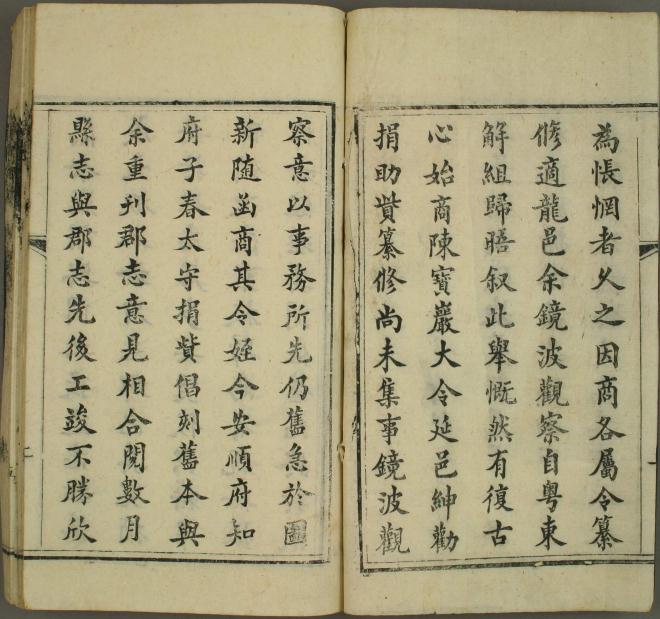 為悵惘者久之因商各屬令纂
修適龍邑余鏡波觀察自粵東
解組歸晤叙此舉慨然有復古
心始商陳寶巖大令延邑紳勸
捐助貲纂修尚未集事鏡波觀
察意以事務所先仍舊急於圖
新随函商其令姪今安順府知
府子春太守捐貲倡刻舊本與
余重刊郡志意見相合閱數月
縣志與郡志先後工竣不勝欣